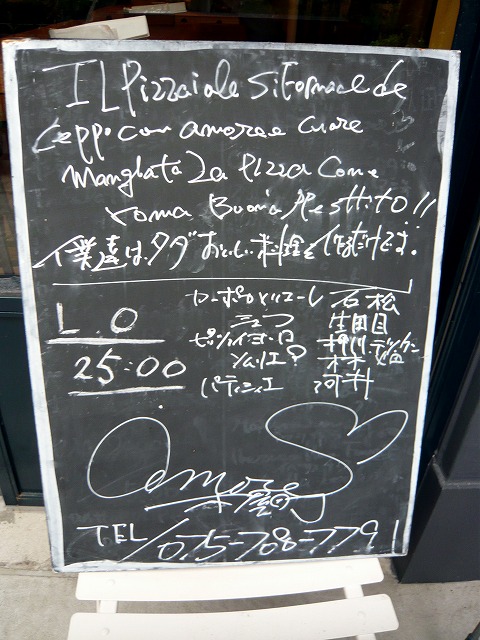 IL Pizzaiole Si Formade de
Ceppo con amore e Cuore
Mangiata La Pizza Come
Roma Buona Appettito!!
僕達は、タダおいしい料理を作るだけです。
L.O
25:00
石松
シェフ 生田目
ピッツァイヨーロ
ソムリエ?
パティシエ 河村
amore
木屋町
TEL/075-708-7791